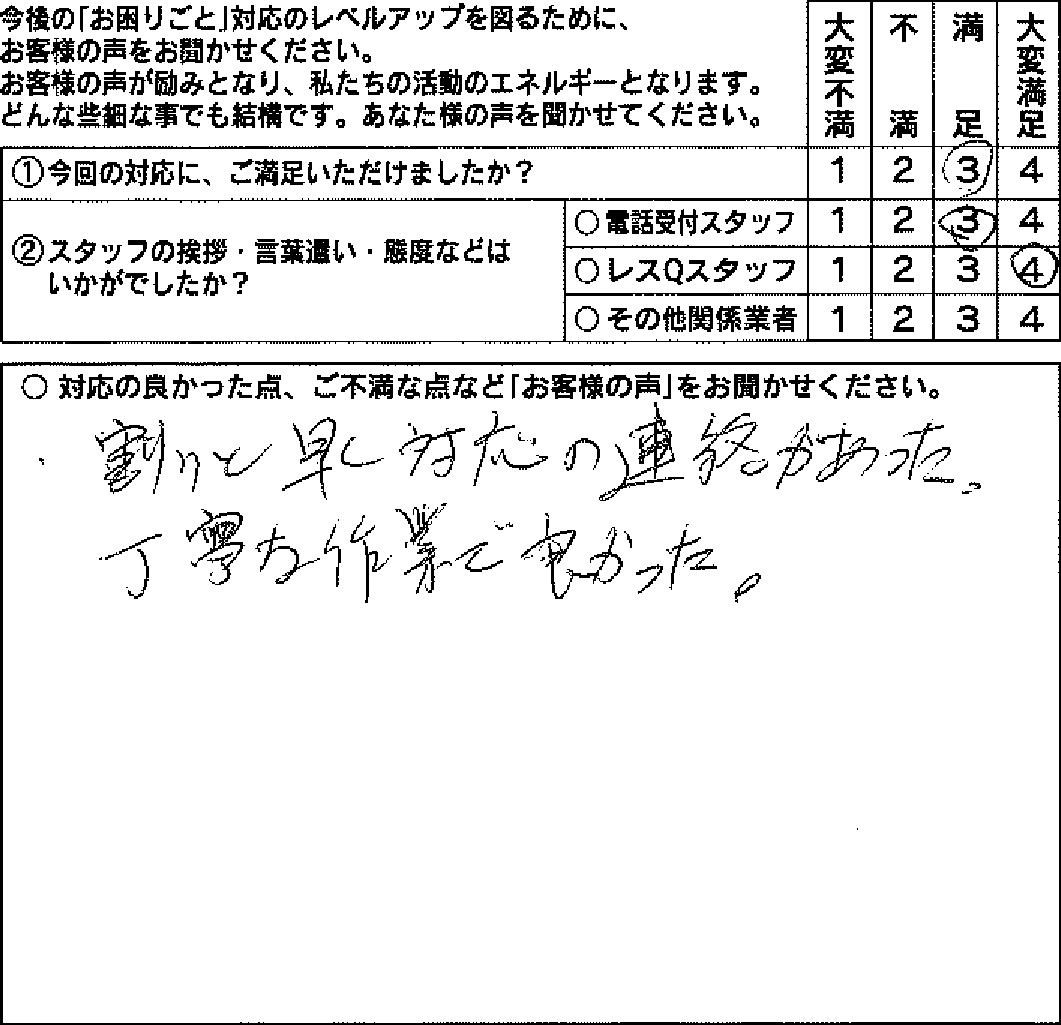 今後の「お困りごと」対応のレベルアップを図るために、
お客様の声をお聞かせください。
お客様の声が励みとなり、私たちの活動のエネルギーとなります。
どんな些細な事でも結構です。あなた様の声を聞かせてください。
大変不満 不満 満足 大変満足
①今回の対応に、ご満足いただけましたか？ 1 2 3 4
②スタッフの挨拶・言葉遣い・態度などは
いかがでしたか？
○電話受付スタッフ 1 2 3 4
○レスQスタッフ 1 2 3 4
○その他関係業者 1 2 3 4
○ 対応の良かった点、ご不満な点など「お客様の声」をお聞かせください。
割りと早く対応の連絡があった。
丁寧な作業で良かった。